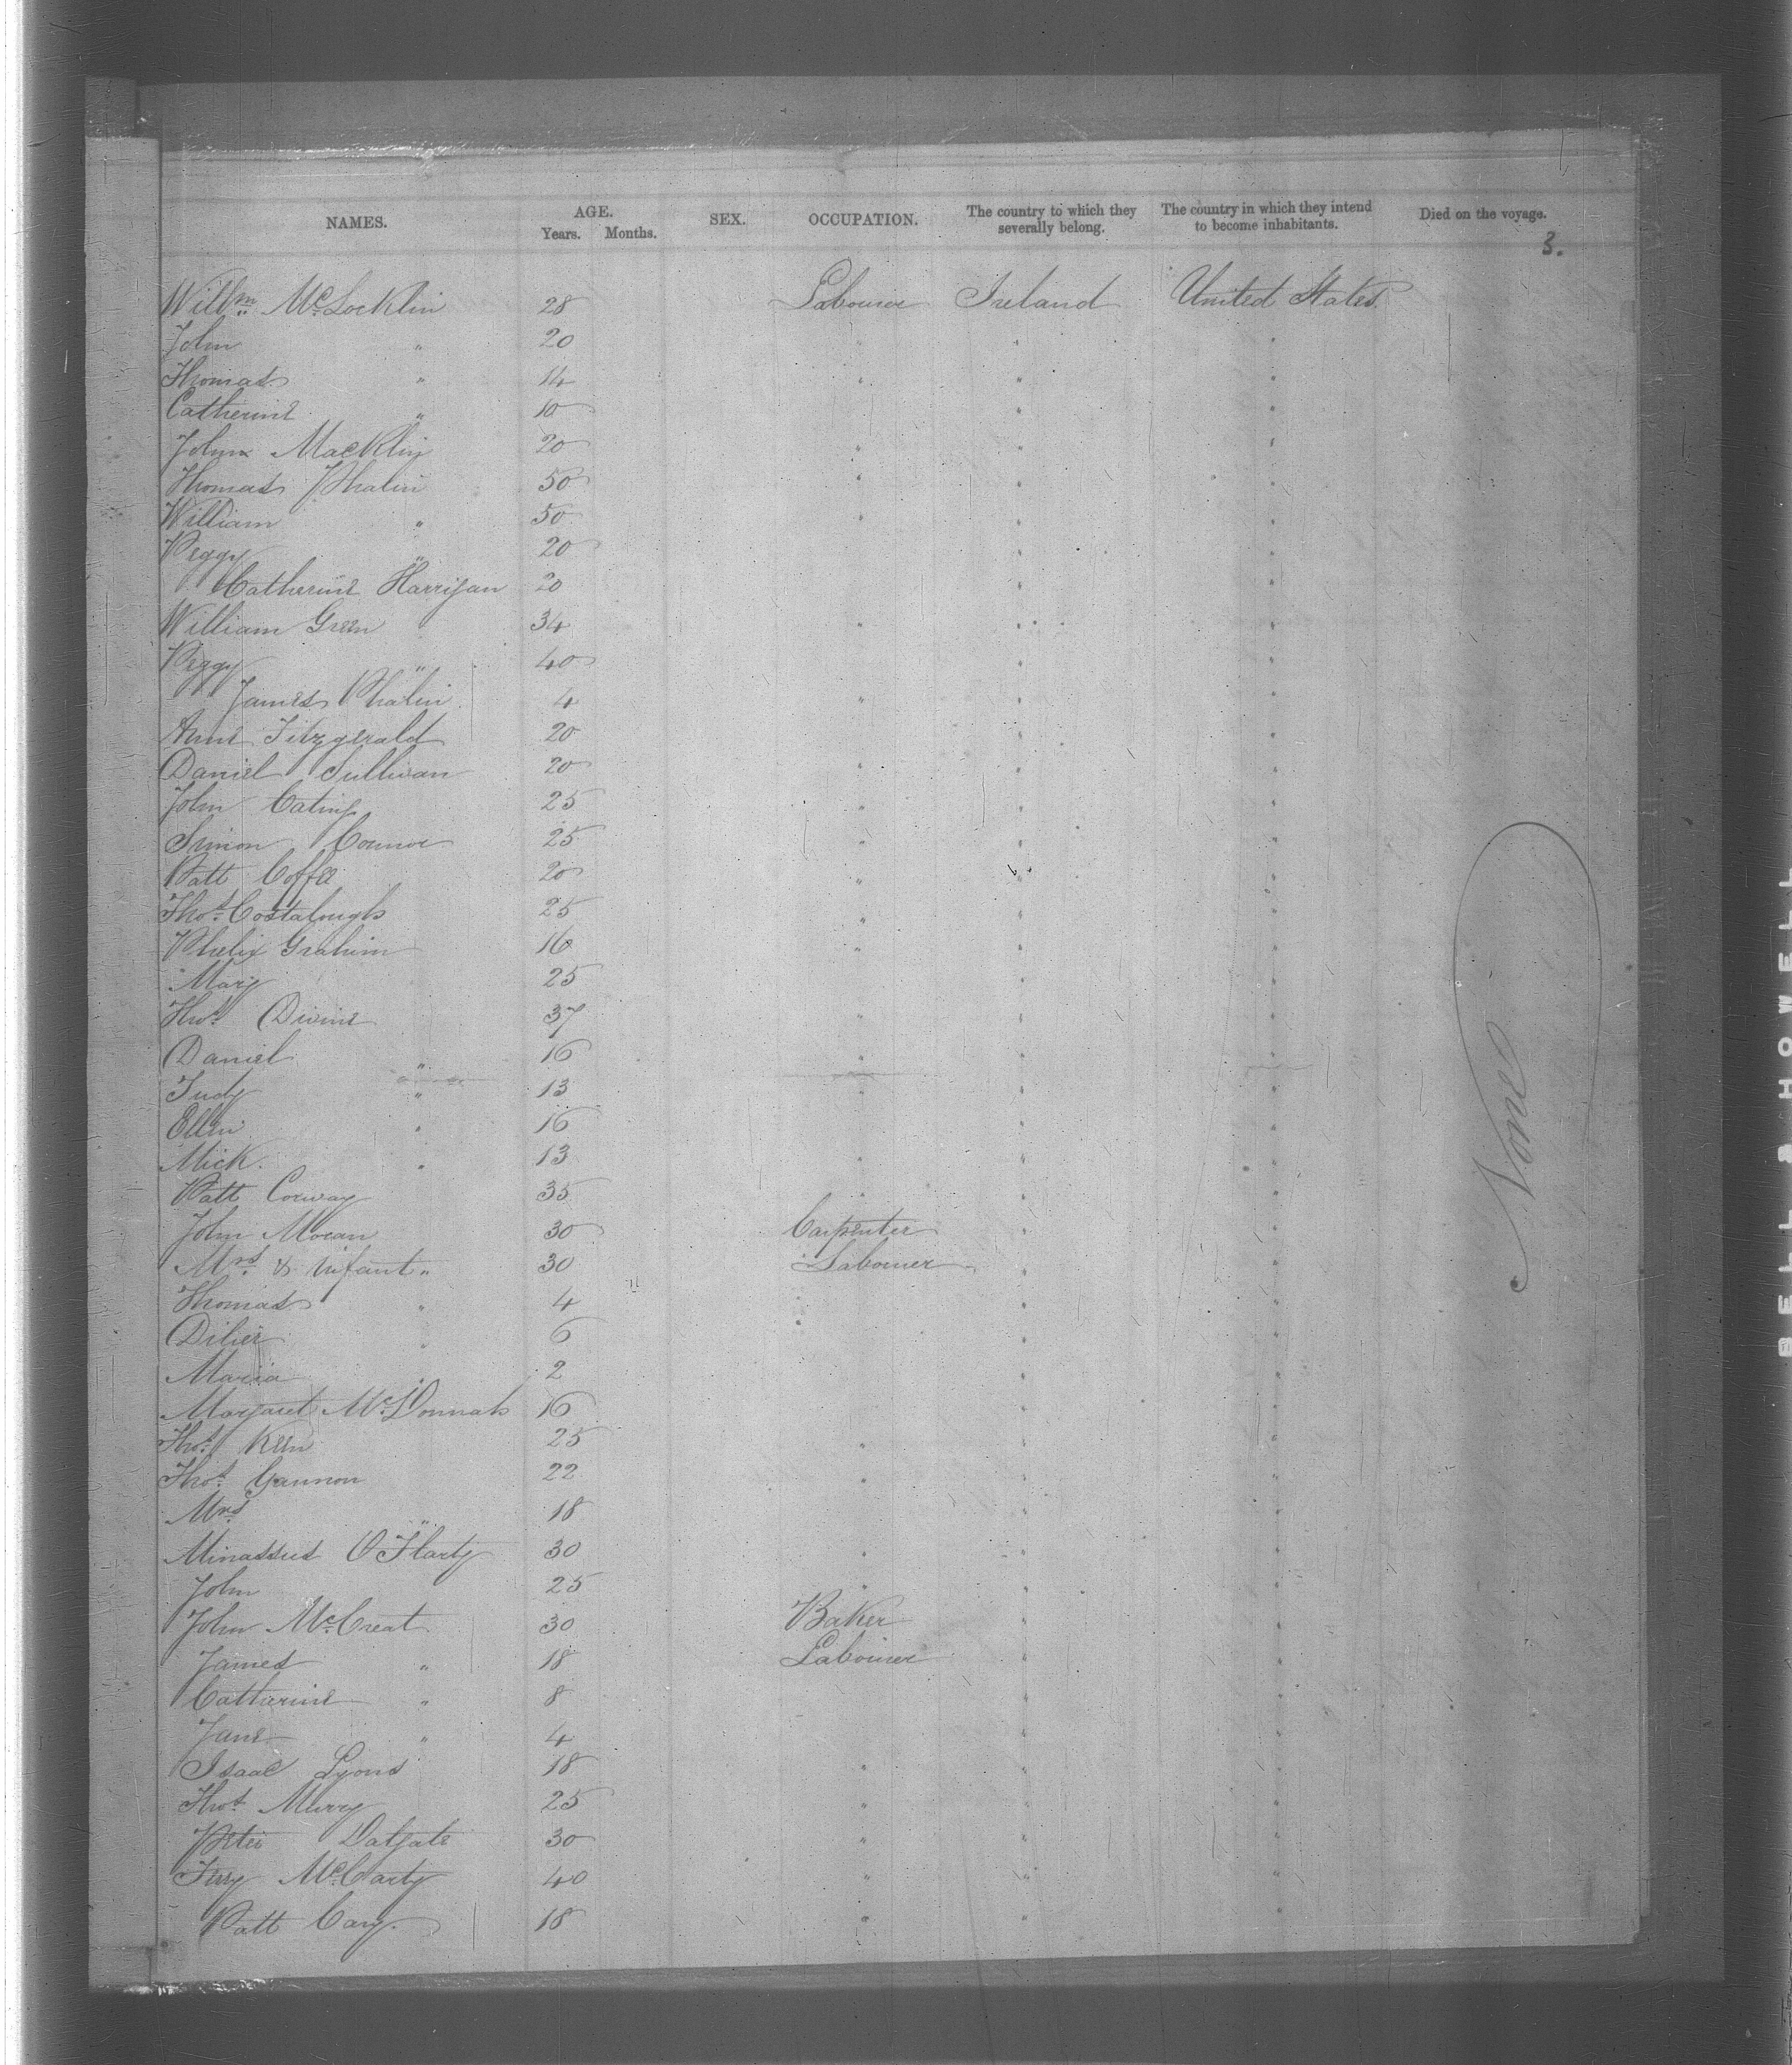 NAMES. AGE. Years. Months. SEX. OCCUPATION. The country to which they severally belong. The country in which they intend to become inhabitants. Died on the voyage.
3.
Willm McLocklin 28 Labourer Ireland United States
John " 20 " " "
Thomas " 14 " " "
Catherine " 10 " "
John Macklin 20 " " "
Thomas Phalin 50 " " "
William " 50 " " "
Peggy " 20 " "
Catherine Harrigan 20 " "
William Green 34 " " "
Peggy " 40 " "
James Phalin 4 " " "
Anne Fitzgerald 20 " "
Daniel Sullivan 20 " " "
John Cating 25 " " "
Simon Connor 25 " " "
Patt Coffee 20 " " "
Thos Costalough 25 " " "
Phelix Grahim 16 " " "
Mary 25 " "
Thos Divine 37 " " "
Daniel " 16 " " "
Judy " 13 " " "
Ellen " 16 " "
Mick " 13 " " "
Patt Conway 35 " " "
John Moran 30 Carpenter " "
Mrs & infant " 30 Labourer " "
Thomas " 4 " " "
6 " "
Maria " 2 " "
Margaret McDonnah 16 " "
Thos Keen 25 " " "
Thos Gannon 22 " " "
Mrs " 18 " "
O'Flarty 30 " " "
John 25 " " "
John McCreat 30 Baker " "
James " 18 Labourer " "
Catharine " 8 " "
Jane " 4 " "
Isaac Lyons 18 " " "
Thos Murry 25 " " "
Peter Dalgate 30 " " "
Terry McCarty 40 " " "
Patt Cary. 18 " " "
None
BELL & HOWELL